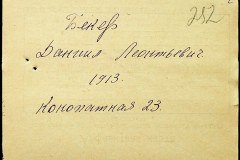 Бекер 252
Даниил Леонтьевич
1913.
Конопатная 23.